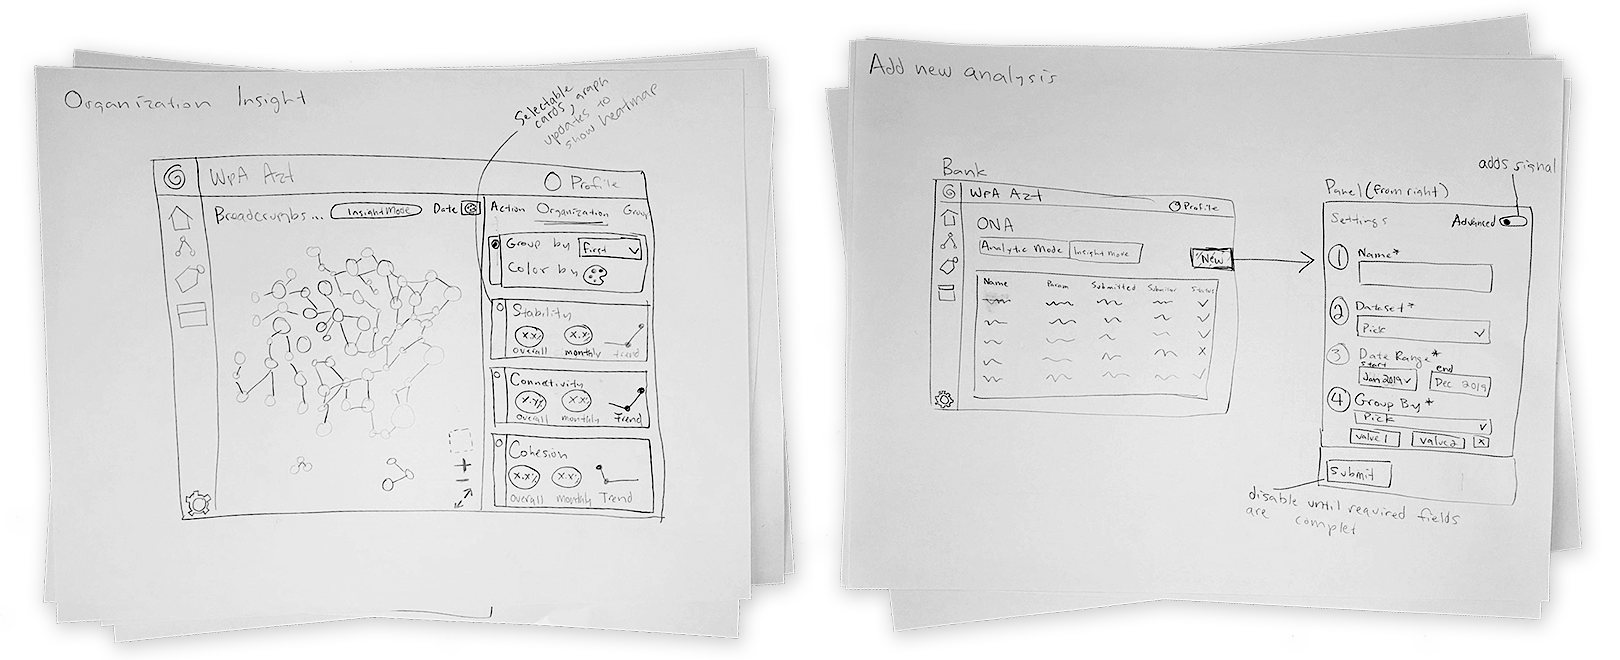 Organization Insight
Selectable
cards, graph
updates to
show heatmap
WpA Azt
Profile
Breadcrumbs...
Insight Mode
Date
Action Organization Group
Group by
First
Color by
Stability
x.x%
x.x%
overall
monthly
trend
Connectivity
x.x%
x.x
overall
monthly
Trend
Cohesion
x.x%
x.x%
overall
monthly
Trend
Add new analysis
Bank
WpA Azt
Profile
ONA
Analytic Mode
Insight mode
New
Name Param Submitted Submitter Status
x
adds signal
Panel (from right)
Settings
Advanced
1 Name*
2 Dataset*
Pick
3 Date Range*
start
end
Jan 2019
Dec 2019
4 Group By*
Pick
value 1
value 2
x
Submit
disable until required fields
are complet